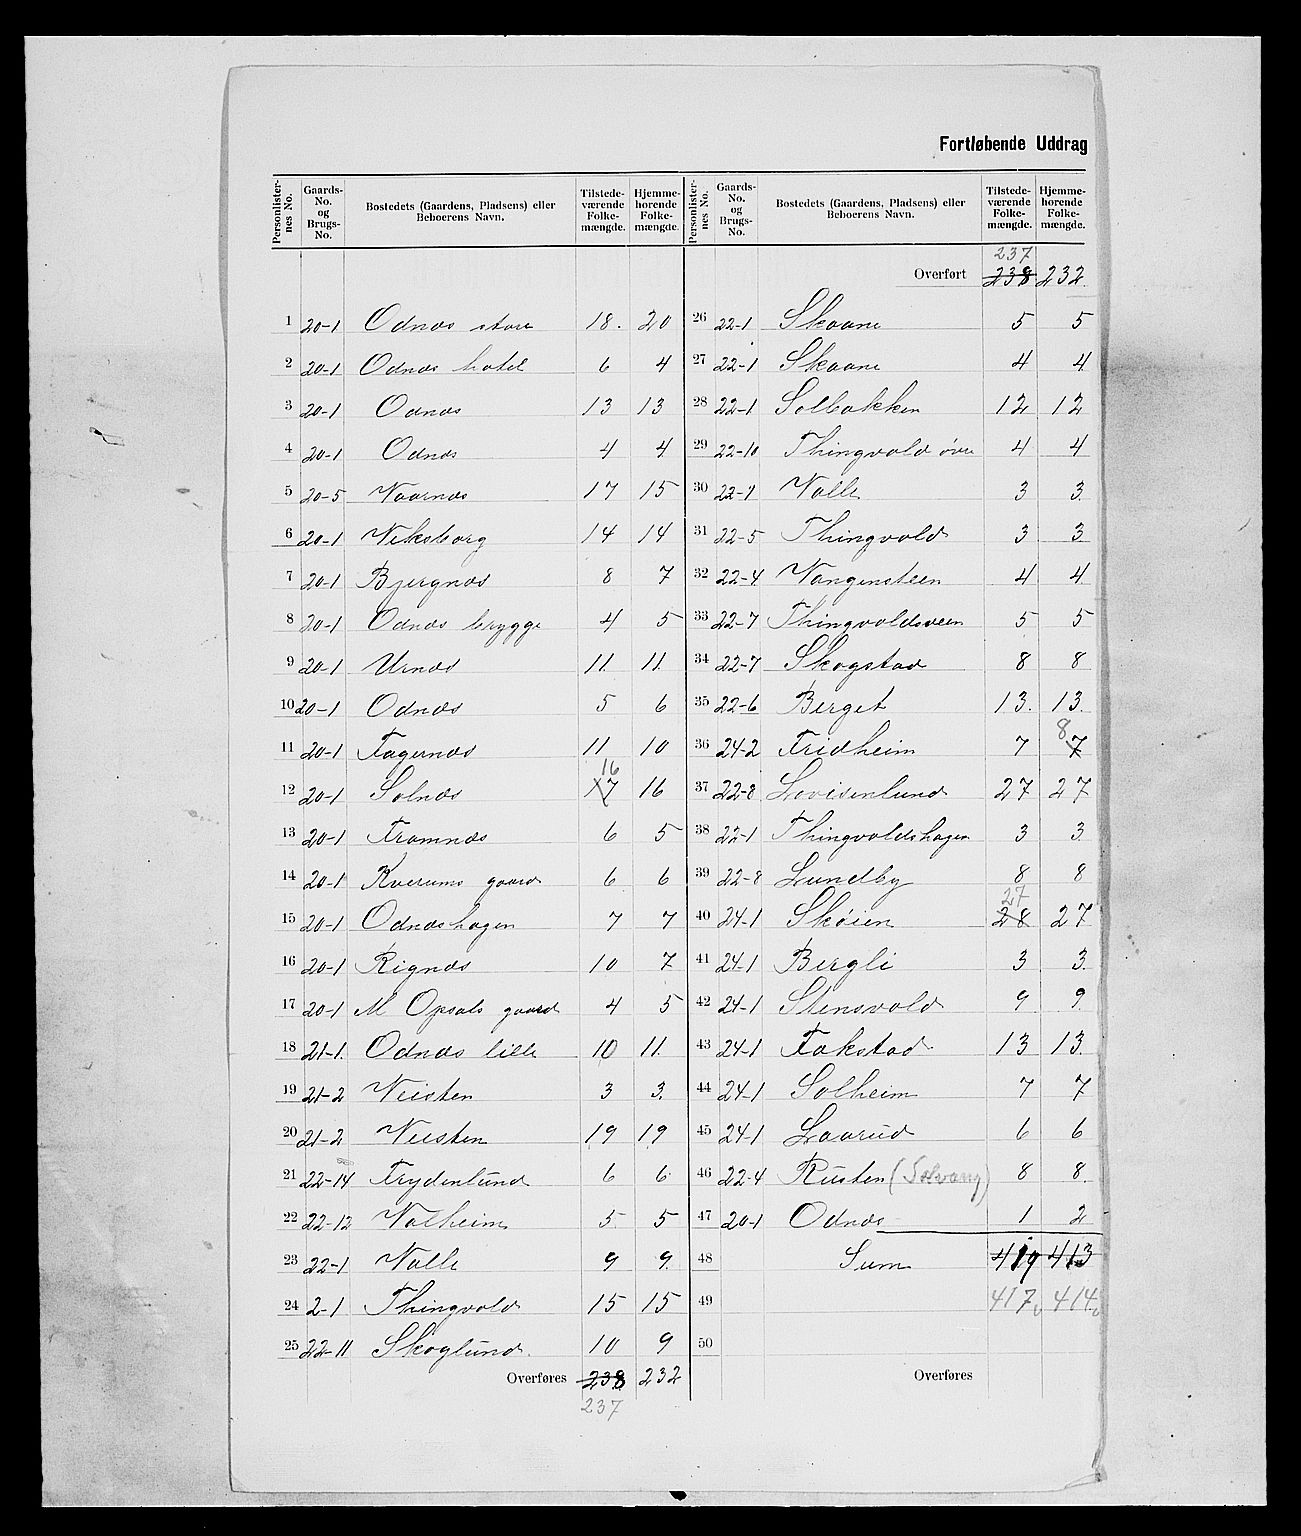 Fortløbende Uddrag
Personlisternes No. Gaards-No. og Brugs-No. Bostedets (Gaardens, Pladsens) eller Beboerens Navn. Tilstedeværende Folkemængde. Hjemmehørende Folkemængde.
1 20-1 Odnæs store 18. 20
2 20-1 Odnæs hotel 6 4
3 20-1 Odnæs 13 13
4 20-1 Odnæs 4 4
5 20-5 Vaarnæs 17 15
6 20-1 Viksborg 14 14
7 20-1 Bjergnæs 8 7
8 20-1 Odnæs brygge 4 5
9 20-1 Urnæs 11. 11.
10 20-1 Odnæs 5 6
11 20-1 Fagernæs 11 10
16
12 20-1 Solnæs 17 16
13 20-1 Framnæs 6 5
14 20-1 Kverums gaard 6 6
15 20-1 Odnæshagen 7 7
16 20-1 Rignæs 10 7
17 20-1 M Opsals gaard 4 5
18 21-1. Odnæs lille 10 11.
19 21-2 Veisten 3 3.
20 21-2 Veisten 19 19
21 22-14 Frydenlund 6 6
22 22-12 Valheim 5 5
23 22-1 Valle 9 9.
24 2-1 Thingvold 15 15
25 22-11 Skoglund. 10 9
Overføres 238 232
237
Personlisternes No. Gaards-No. og Brugs-No. Bostedets (Gaardens, Pladsens) eller Beboerens Navn. Tilstedeværende Folkemængde. Hjemmehørende Folkemængde.
237
Overført 238 232.
26 22-1 Skaane 5 5
27 22-1 Skaane 4 4
28 22-1 Solbakken 12 12
29 22-10 Thingvold øvre 4 4
30 22-1 Valle 3 3.
31 22-5 Thingvold 3 3
32 22-4 Vangensteen 4 4
33 22-7 Thingvoldsveen 5 5
34 22-7 Skogstad 8 8
35 22-6 Berget 13. 13.
8.
36 24-2 Fridheim 7 7
37 22-8 Lovisenlund 27 27
38 22-1 Thingvoldshagen 3 3.
39 22-8 Lundby 8 8
27
40 24-1 Skøien 28 27
41 24-1 Bergli 3 3.
42 24-1 Stensvold 9 9.
43 24-1 Fakstad 13 13.
44 24-1 Solheim 7 7
45 24-1 Laarud 6 6
46 22-4 Rusten (Solvang) 8 8.
47 20-1 Odnæs 1 2
48 Sum 419 413
49 417 414
50
Overføres